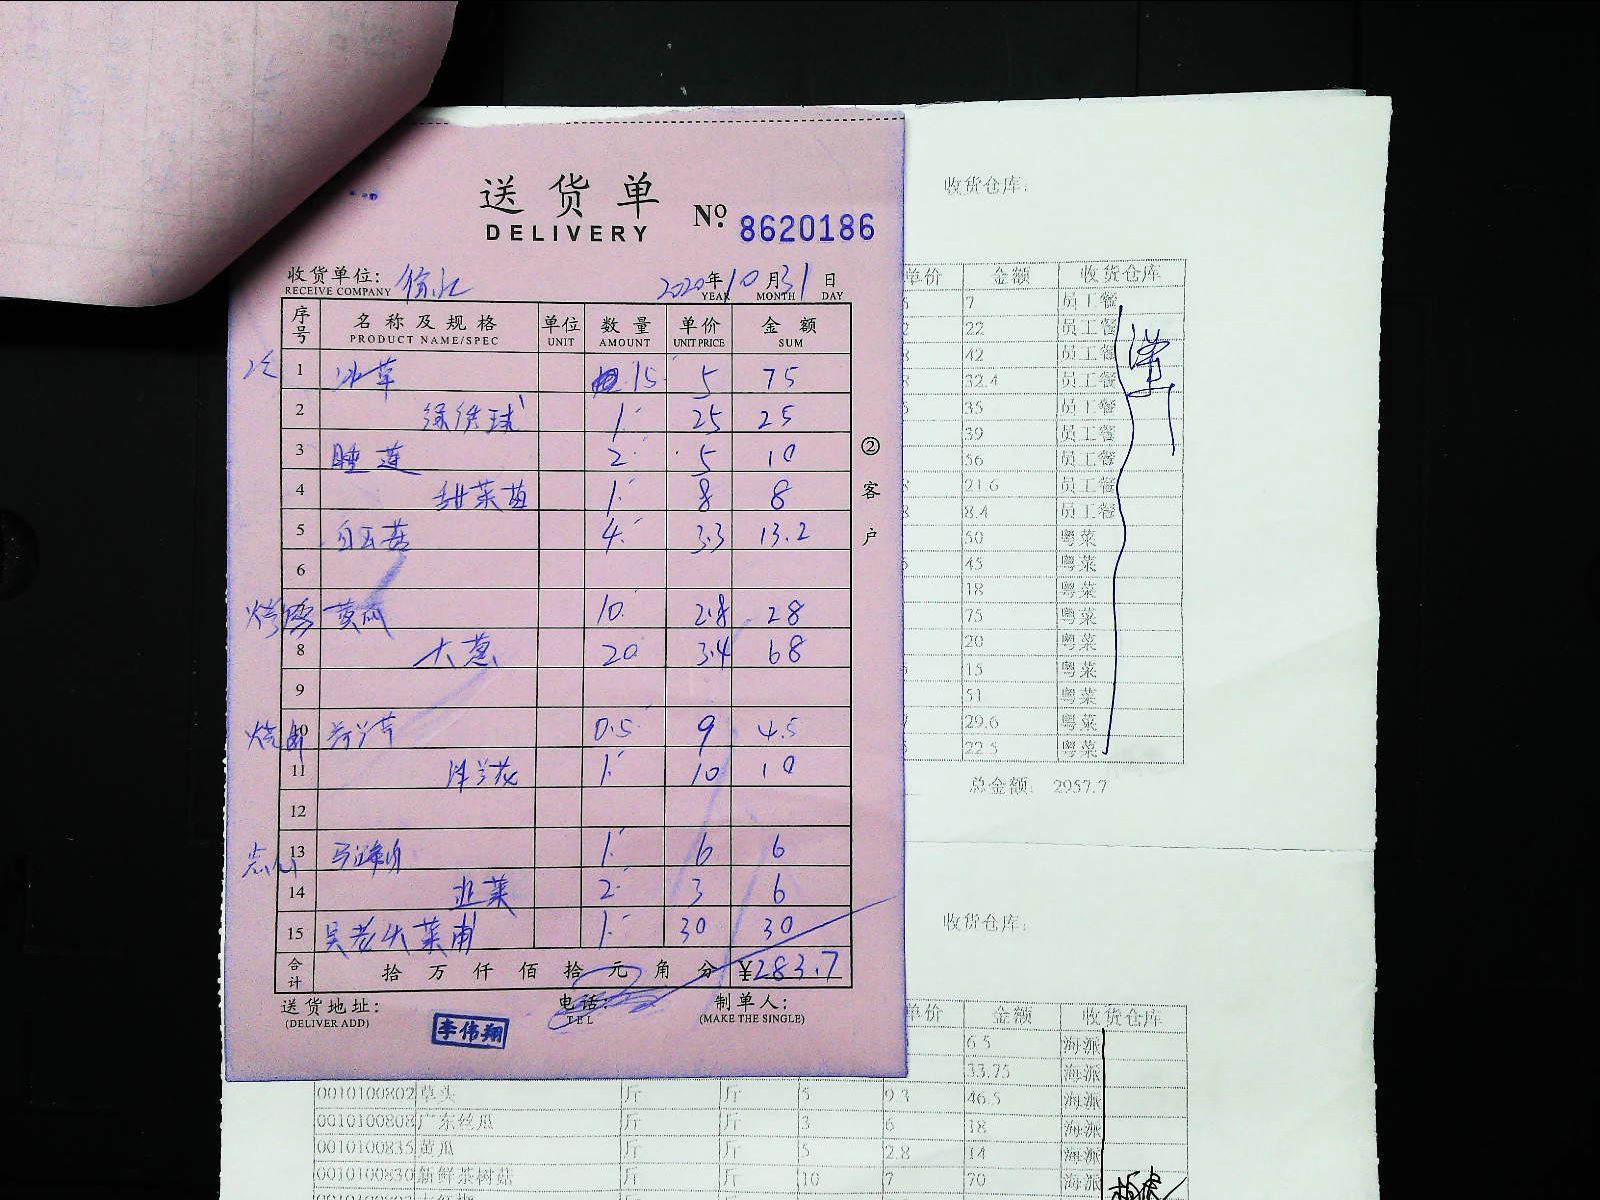 送货单
DELIVERY
№ 8620186
收货单位: 徐汇 2020年10月31日
RECEIVE COMPANY YEAR MONTH DAY
序号 名称及规格 单位 数量 单价 金额
PRODUCT NAME/SPEC UNIT AMOUNT UNIT PRICE SUM
1 冰草 15 5 75
2 球 1 25 25
3 睡莲 2 5 10
4 甜菜苗 1 8 8
5 白玉菇 4 3.3 13.2
6
黄瓜 10 2.8 28
8 大葱 20 3.4 68
9
10 0.5 9 4.5
11 洋兰花 1 10 10
12
点心 13 1 6 6
14 韭菜 2 3 6
15 吴老大菜甫 1 30 30
合计 拾万仟佰拾元角分 ¥283.7
送货地址: 电话: 制单人:
(DELIVER ADD) TEL (MAKE THE SINGLE)
李伟翔
②客户
收货仓库:
单价 金额 收货仓库
7 员工餐
22 员工餐
42 员工餐
32.4 员工餐
35 员工餐
39 员工餐
56 员工餐
21.6 员工餐
8.4 员工餐
50 粤菜
45 粤菜
18 粤菜
75 粤菜
20 粤菜
15 粤菜
51 粤菜
29.6 粤菜
22.5 粤菜
总金额: 2957.7
收货仓库:
单价 金额 收货仓库
6.5 海派
33.75 海派
0010100802 草头 斤 斤 5 9.3 46.5 海派
0010100808 广东丝瓜 斤 斤 3 6 18 海派
0010100835 黄瓜 斤 斤 5 2.8 14 海派
0010100830 新鲜茶树菇 斤 斤 10 7 70 海派